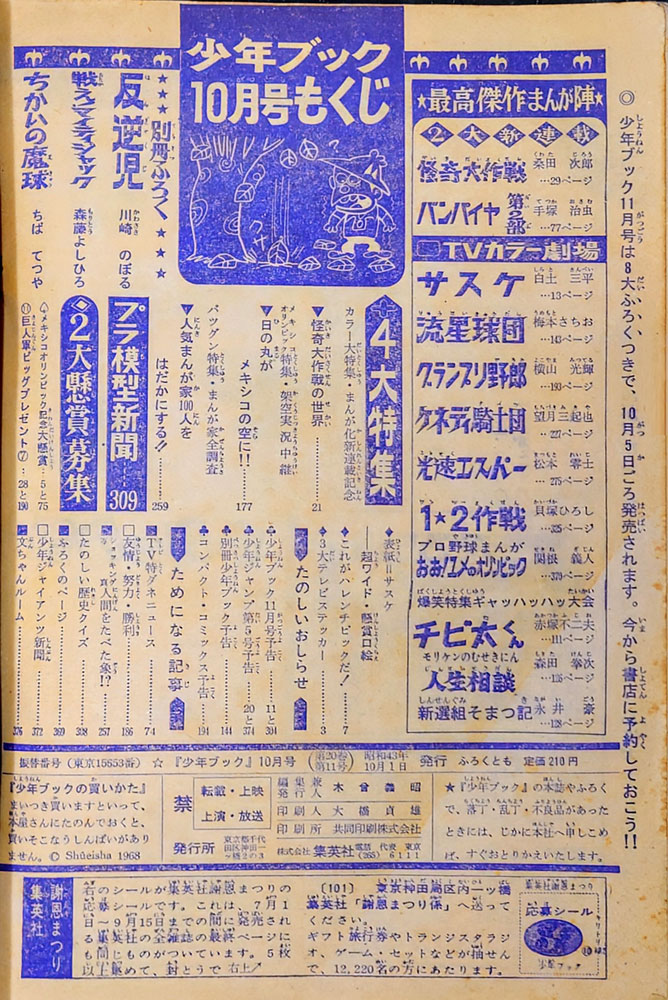 ◎少年ブック11月号は8大ふろくつきで、10月5日ごろ発売されます。今から書店に予約しておこう!!
★最高傑作まんが陣★
2大新連載
怪奇大作戦 桑田次郎 …29ページ
バンパイヤ 第2部 手塚治虫 …77ページ
TVカラー劇場
サスケ 白土三平 …13ページ
流星球団 梅本さちお …143ページ
グランプリ野郎 横山光輝 …193ページ
ケネディ騎士団 望月三起也 …227ページ
光速エスパー 松本零士 …275ページ
1★2作戦 貝塚ひろし …325ページ
プロ野球まんが
おお!ユメのオリンピック 関根義人 …379ページ
爆笑特集ギャッハッハッ大会
チビ太くん 赤塚不二夫 …111ページ
モリケンのむせきにん
人生相談 森田拳次 …126ページ
新選組そまつ記 永井豪 …128ページ
少年ブック
10月号もくじ
★★★別冊ふろく★★★
反逆児 川崎のぼる
戦え!マイティジャック 森藤よしひろ
ちかいの魔球 ちばてつや
4大特集
カラー大特集・まんが化新連載記念
▼怪奇大作戦の世界…21
メキシコオリンピック特集・架空実況中継
▼日の丸がメキシコの空に!!…177
バツグン特集・まんが家全調査
▼人気まんが家100人をはだかにする!!…259
プラ模型新聞…309
◆2大懸賞募集
メキシコオリンピック記念大懸賞…5と75
巨人軍ビッグプレゼント⑦…28と190
◆表紙=サスケ
――超ワイド・懸賞口絵
◆これがハレンチピックだ!…7
◆3大テレビステッカー…3
◆たのしいおしらせ
◆少年ブック11月号予告…11と304
◆少年ジャンプ第5号予告…20と374
◆別冊少年ブック予告…144
◆コンパクト・コミックス予告…194
◆ためになる記事
□TV特ダネニュース…74
□友情・努力・勝利…186
□ショッキング 人間をたべた象!?…257
□たのしい歴史クイズ…308
□ふろくのページ…369
□少年ジャイアンツ新聞…372
□文ちゃんルーム…376
振替番号(東京15653番) ☆『少年ブック』10月号 (第20巻 第11号) 昭和43年10月1日 発行 ふろくとも 定価210円
『少年ブックの買いかた』
まいつき買いますといって、
本屋さんにたのんでおくと、
買いそこなうしんぱいがあり
ません。© Shūeisha 1968
禁 転載・上映 上演・放送
発行所 東京都千代田区神田一ツ橋2の3
編集兼発行人 木曾義昭
印刷人 大橋貞雄
印刷所 共同印刷株式会社
株式会社 集英社 電話 代表 東京(265)6111
★『少年ブック』の本誌やふろく
で、落丁・乱丁・不良品があった
ときには、じかに本社へ申しこめ
ば、すぐおとりかえいたします。
謝恩まつり
集英社
右のシールが集英社謝恩まつりの
応募シールです。これは、7月1
日〜9月15日までの間に発売され
る集英社の全雑誌の最終ページに
も同じものがついています。5枚
以上集めて、封とうで 右上↗
〔101〕 東京神田局区内一ツ橋
集英社「謝恩まつり係」へ送って
ください。
ギフト旅行券やトランジスタラジ
オ、ゲーム・セットなどが抽せん
で、12,220名の方にあたります。
集英社謝恩まつり
応募シール
少年ブック
キリトリ